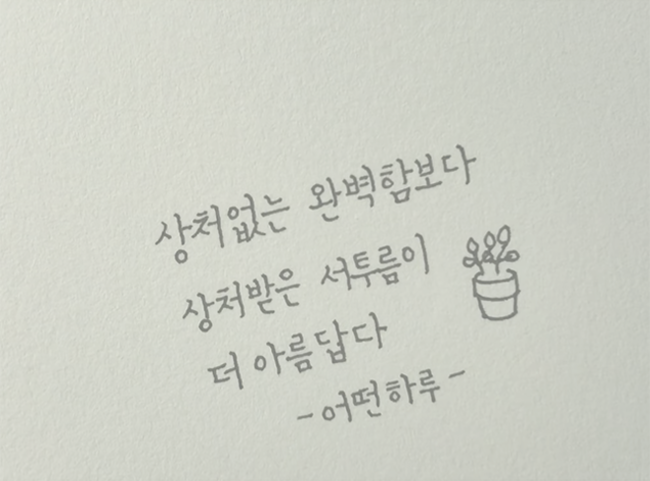 상처없는 완벽함보다
상처받은 서투름이
더 아름답다
-어떤하루-